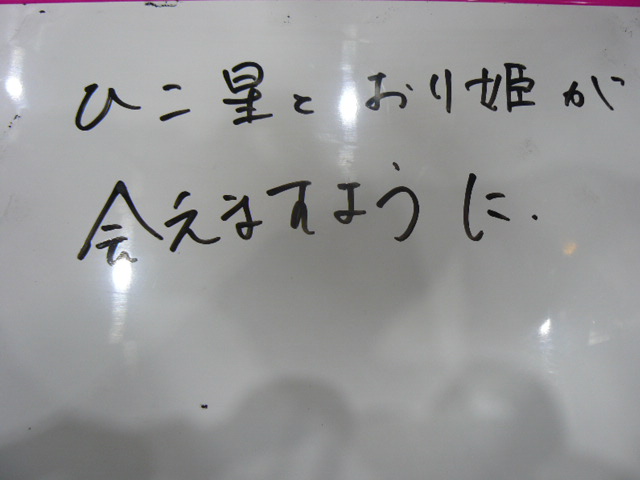 ひこ星とおり姫が
会えますように.